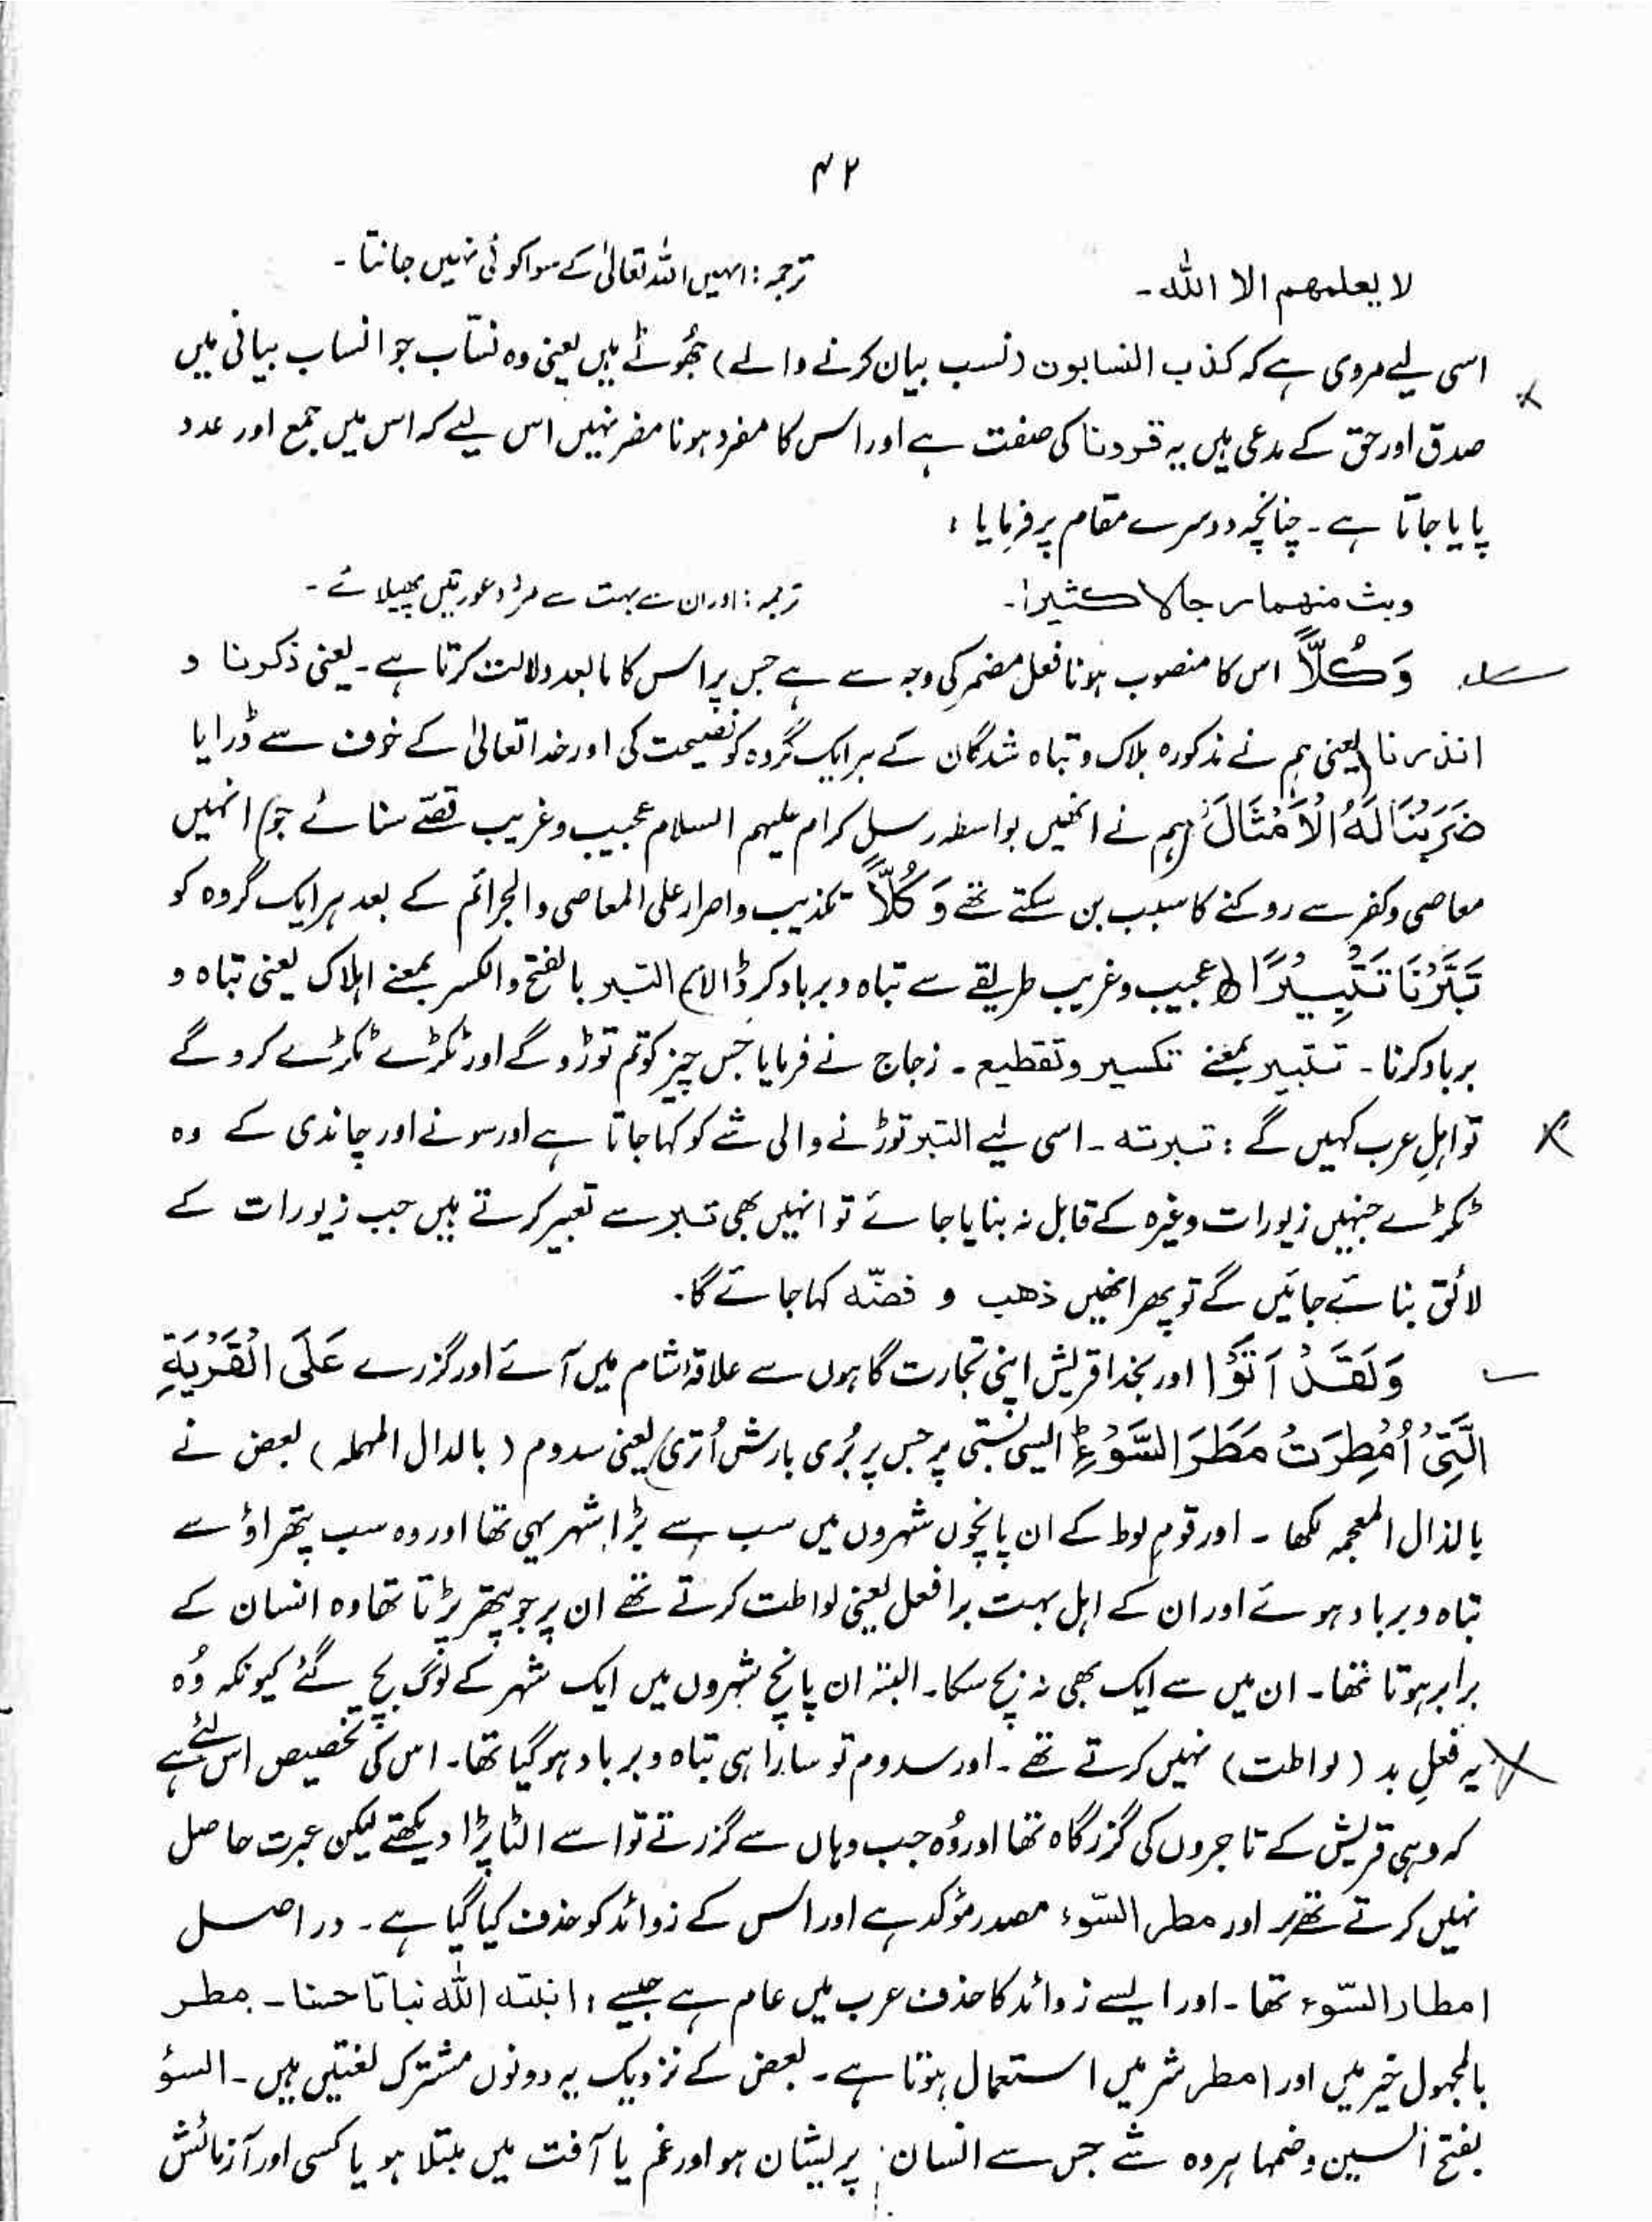 ۴۲
لا يعلمهم الا الله۔ ترجمہ: انہیں اللہ تعالیٰ کے سوا کوئی نہیں جانتا۔
اسی لیے مروی ہے کہ کذب النسابون (نسب بیان کرنے والے) جھُوٹے ہیں یعنی وہ نسّاب جو انساب بیانی میں
صدق اور حق کے مدعی ہیں یہ قرونا کی صفت ہے اور اس کا مفرد ہونا مضر نہیں اس لیے کہ اس میں جمع اور عدد
پایا جاتا ہے۔ چنانچہ دوسرے مقام پر فرمایا:
وبث منهما رجالا كثيرا۔ ترجمہ: اور ان سے بہت سے مرد و عورتیں پھیلائے۔
وَكُلًّا اس کا منصوب ہونا فعل مضمر کی وجہ سے ہے جس پر اس کا مابعد دلالت کرتا ہے۔ یعنی ذکرنا و
انذرنا (یعنی ہم نے مذکورہ ہلاک و تباہ شدگان کے ہر ایک گروہ کو نصیحت کی اور خدا تعالیٰ کے خوف سے ڈرایا
ضَرَبْنَا لَهُ الْاَمْثَالَ (ہم نے انھیں بواسطہ رسل کرام علیہم السلام عجیب و غریب قصّے سنائے جو) انہیں
معاصی و کفر سے روکنے کا سبب بن سکتے تھے وَكُلًّا تکذیب و اصرار علی المعاصی والجرائم کے بعد ہر ایک گروہ کو
تَبَّرْنَا تَتْبِيْرًا ○ عجیب و غریب طریقے سے تباہ و برباد کر ڈالا) التبر بالفتح والکسر بمعنے اہلاک یعنی تباہ و
برباد کرنا۔ تتبیر بمعنے تکسیر و تقطیع۔ زجاج نے فرمایا جس چیز کو تم توڑو گے اور ٹکڑے ٹکڑے کرو گے
تو اہلِ عرب کہیں گے : تبرته۔ اسی لیے التبر توڑنے والی شے کو کہا جاتا ہے اور سونے اور چاندی کے وہ
ٹکڑے جنہیں زیورات وغیرہ کے قابل نہ بنایا جائے تو انہیں بھی تبر سے تعبیر کرتے ہیں جب زیورات کے
لائق بنائے جائیں گے تو پھر انھیں ذھب و فضّہ کہا جائے گا۔
وَلَقَدْ اَتَوْا اور بخدا قریش اپنی تجارت گاہوں سے علاقۂ شام میں آئے اور گزرے عَلَى الْقَرْيَةِ
الَّتِيْ اُمْطِرَتْ مَطَرَ السَّوْءِ ؕ ایسی بستی پر جس پر بُری بارش اُتری) یعنی سدوم (بالدال المہملہ) بعض نے
بالذال المعجمہ لکھا۔ اور قومِ لوط کے ان پانچوں شہروں میں سب سے بڑا شہر یہی تھا اور وہ سب پتھراؤ سے
تباہ و برباد ہوئے اور ان کے اہل بہت برا فعل یعنی لواطت کرتے تھے ان پر جو پتھر پڑتا تھا وہ انسان کے
برابر ہوتا تھا۔ ان میں سے ایک بھی نہ بچ سکا۔ البتہ ان پانچ شہروں میں ایک شہر کے لوگ بچ گئے کیونکہ وُہ
یہ فعلِ بد (لواطت) نہیں کرتے تھے۔ اور سدوم تو سارا ہی تباہ و برباد ہو گیا تھا۔ اس کی تخصیص اس لئے ہے
کہ وہی قریش کے تاجروں کی گزرگاہ تھا اور وُہ جب وہاں سے گزرتے تو اسے الٹا پڑا دیکھتے لیکن عبرت حاصل
نہیں کرتے تھے اور مطر السّوء مصدر مؤکد ہے اور اس کے زوائد کو حذف کیا گیا ہے۔ در اصل
امطار السّوء تھا۔ اور ایسے زوائد کا حذف عرب میں عام ہے جیسے : انبتہ اللہ نباتا حسنا۔ مطر
بالمجہول خیر میں اور امطر شر میں استعمال ہوتا ہے۔ بعض کے نزدیک یہ دونوں مشترک لغتیں ہیں۔ السوؤ
بفتح السین وضمہا ہر وہ شے جس سے انسان پریشان ہو اور غم یا آفت میں مبتلا ہو یا کسی اور آزمائش